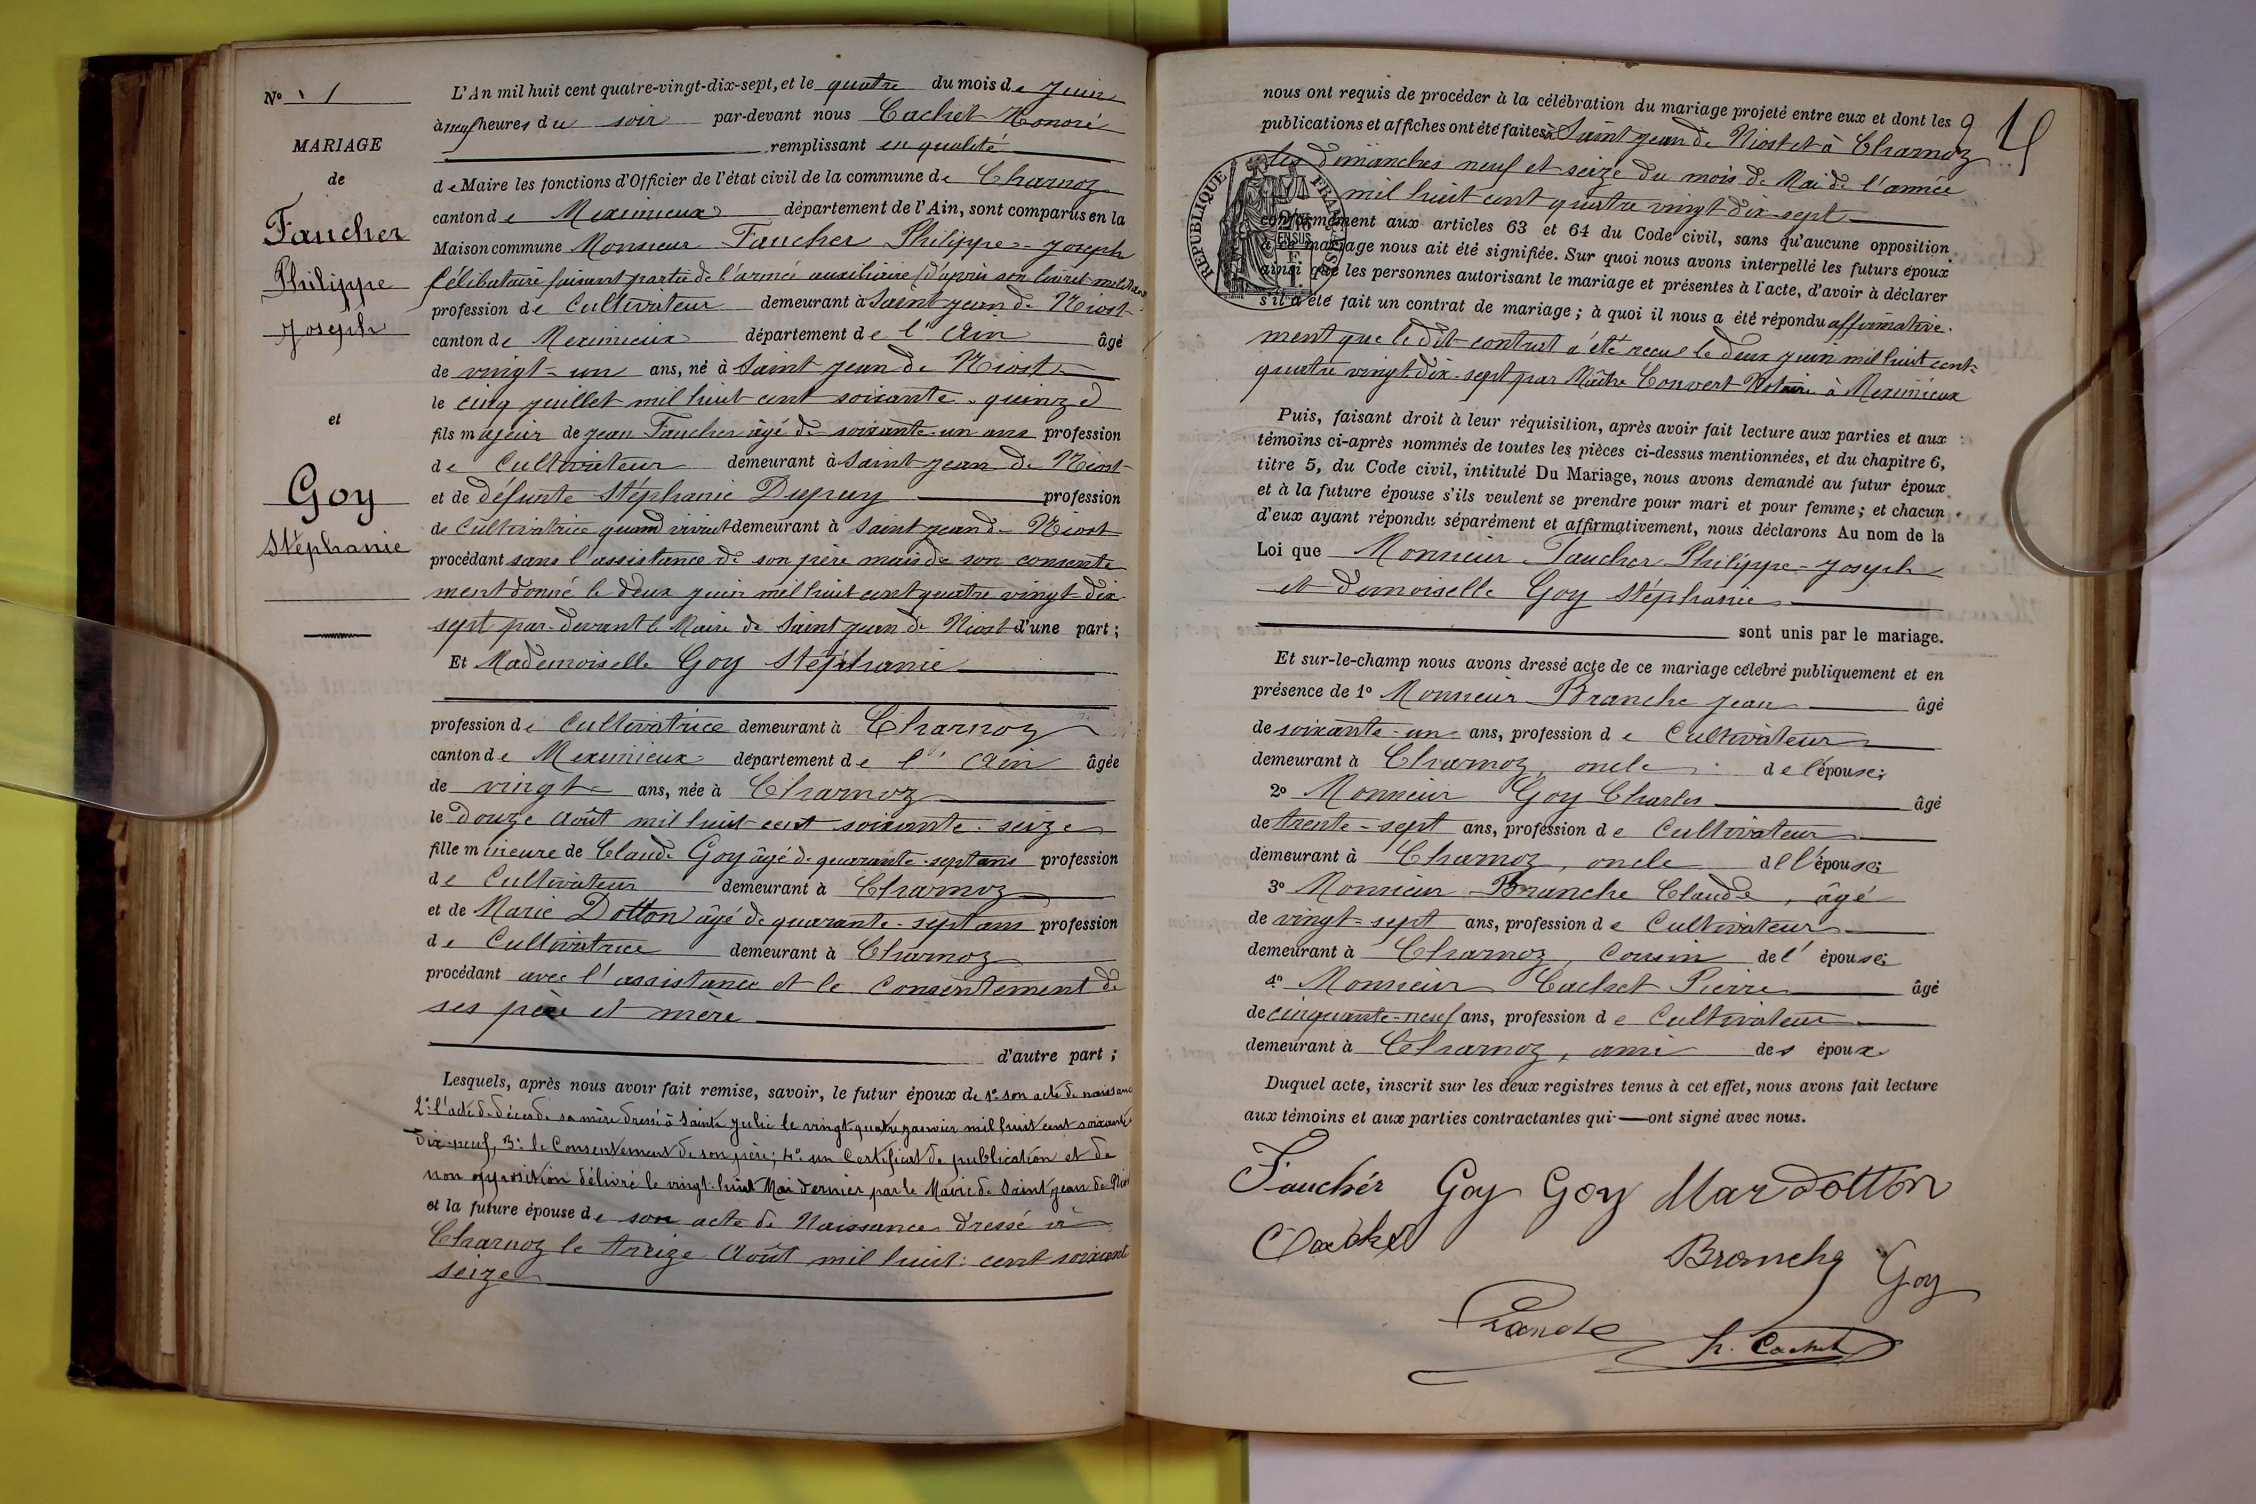 N° 1
MARIAGE
de
Faucher
Philippe
Joseph
et
Goy
Stéphanie
L'An mil huit cent quatre-vingt-dix-sept, et le quatre du mois de Juin
à neuf heures du soir par-devant nous Cachet Honoré
remplissant en qualité
de Maire les fonctions d'Officier de l'état civil de la commune de Charnoz
canton de Meximieux département de l'Ain, sont comparus en la
Maison commune Monsieur Faucher Philippe-Joseph
Célibataire faisant partie de l'armée auxiliaire (d'après son livret militaire
profession de Cultivateur demeurant à Saint Jean de Niost
canton de Meximieux département de l'Ain âgé
de vingt-un ans, né à Saint Jean de Niost
le cinq juillet mil huit cent soixante-quinze
fils majeur de Jean Faucher âgé de soixante-un ans profession
de Cultivateur demeurant à Saint Jean de Niost
et de défunte Stéphanie Dupuy profession
de Cultivatrice quand vivait demeurant à Saint Jean de Niost
procédant sans l'assistance de son père mais de son consente
ment donné le deux juin mil huit cent quatre vingt-dix
sept par-devant le Maire de Saint Jean de Niost d'une part ;
Et Mademoiselle Goy Stéphanie
profession de Cultivatrice demeurant à Charnoz
canton de Meximieux département de l'Ain âgée
de vingt ans, née à Charnoz
le Douze Août mil huit cent soixante-seize
fille mineure de Claude Goy âgé de quarante-sept ans profession
de Cultivateur demeurant à Charnoz
et de Marie Dotton âgé de quarante-sept ans profession
de Cultivatrice demeurant à Charnoz
procédant avec l'assistance et le Consentement de
ses père et mère
d'autre part ;
Lesquels, après nous avoir fait remise, savoir, le futur époux de 1° son acte de naissance
2° l'acte de décès de sa mère dressé à Sainte Julie le vingt-quatre janvier mil huit cent soixante
Dix-neuf, 3° le Consentement de son père ; 4° un Certificat de publication et de
non opposition délivré le vingt-huit Mai dernier par le Maire de Saint Jean de Niost
et la future épouse de son acte de Naissance dressé à
Charnoz le treize Août mil huit cent soixante
seize
9
4
nous ont requis de procéder à la célébration du mariage projeté entre eux et dont les
publications et affiches ont été faites à Saint Jean de Niost et à Charnoz
les dimanches neuf et seize du mois de Mai de l'année
mil huit cent quatre vingt dix-sept
RÉPUBLIQUE FRANÇAISE
conformément aux articles 63 et 64 du Code civil, sans qu'aucune opposition
à ce mariage nous ait été signifiée. Sur quoi nous avons interpellé les futurs époux
ainsi que les personnes autorisant le mariage et présentes à l'acte, d'avoir à déclarer
s'il a été fait un contrat de mariage ; à quoi il nous a été répondu affirmative-
ment que le dit contrat a été reçu le deux juin mil huit cent-
quatre vingt-dix-sept par Maître Convert Notaire à Meximieux
Puis, faisant droit à leur réquisition, après avoir fait lecture aux parties et aux
témoins ci-après nommés de toutes les pièces ci-dessus mentionnées, et du chapitre 6,
titre 5, du Code civil, intitulé Du Mariage, nous avons demandé au futur époux
et à la future épouse s'ils veulent se prendre pour mari et pour femme ; et chacun
d'eux ayant répondu séparément et affirmativement, nous déclarons Au nom de la
Loi que Monsieur Faucher Philippe-Joseph
et demoiselle Goy Stéphanie
sont unis par le mariage.
Et sur-le-champ nous avons dressé acte de ce mariage célébré publiquement et en
présence de 1° Monsieur Branche Jean âgé
de soixante-un ans, profession de Cultivateur
demeurant à Charnoz, oncle de l'épouse ;
2° Monsieur Goy Charles âgé
de trente-sept ans, profession de Cultivateur
demeurant à Charnoz, oncle de l'épouse ;
3° Monsieur Branche Claude, âgé
de vingt-sept ans, profession de Cultivateur
demeurant à Charnoz, Cousin de l'épouse ;
4° Monsieur Cachet Pierre âgé
de cinquante-neuf ans, profession de Cultivateur
demeurant à Charnoz, ami des époux
Duquel acte, inscrit sur les deux registres tenus à cet effet, nous avons fait lecture
aux témoins et aux parties contractantes qui ont signé avec nous.
Faucher Goy Goy Mar Dotton
Cachet Branche Goy
h. Cachet